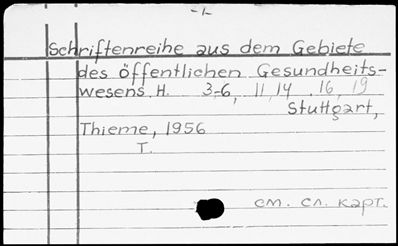 -1-
Schriftenreihe aus dem Gebiete
des öffentlichen Gesundheits-
wesens. H. 3-6, 11, 14, 16, 19
Stuttgart,
Thieme, 1956
T.
см. сл. карт.